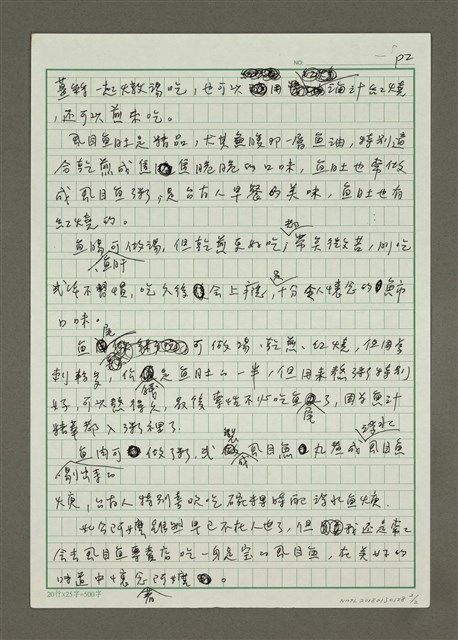 P2
NO.
薑絲一起燉湯吃，也可以用油汁紅燒
，還可以煎來吃。
虱目魚肚是精品，尤其魚腹那一層魚油，特別適
合乾煎成焦焦脆脆的口味，魚肚也常做
成虱目魚粥，是台南人早餐的美味，魚肚也有
紅燒的。
魚腸可做湯，但乾煎來好吃，帶點微苦，剛吃
魚肝
或許不習慣，吃久後會上癮，十分令人懷念的魚市
口味。
魚尾可做湯、乾煎、紅燒，但因多
刺較多，價錢是魚肚的一半，但用來熬粥特別
好，可以熬得久，最後單吃不必吃魚尾了，因為魚汁
精華都入了粥裡了。
魚肉可做了粥，或製成虱目魚丸或虱目魚
羹，台南人特別喜歡吃碗粿時配浮水魚羹。
此今阿嬤雖然早已不在人世了，但我還是常
會去虱目魚專賣店吃一身是寶的虱目魚，在美好的
味道中懷念阿嬤。
20行×25字=500字